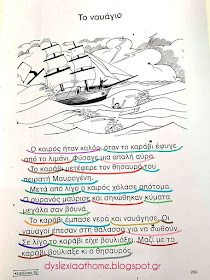 Το ναυάγιο
Ο καιρός ήταν καλός, όταν το καράβι έφυγε
από το λιμάνι. Φύσαγε μια απαλή αύρα.
Το καράβι μετέφερε τον θησαυρό του
πειρατή Μαυρογένη.
Μετά από λίγο ο καιρός χάλασε απότομα.
Ο ουρανός μαύρισε και σηκώθηκαν κύματα
μεγάλα σαν βουνά.
Το καράβι έμπασε νερά και ναυάγησε. Οι
ναυαγοί έπεσαν στη θάλασσα για να σωθούν.
Σε λίγο το καράβι είχε βουλιάξει. Μαζί με το
καράβι βούλιαξε κι ο θησαυρός.
dyslexiaathome.blogspot.gr